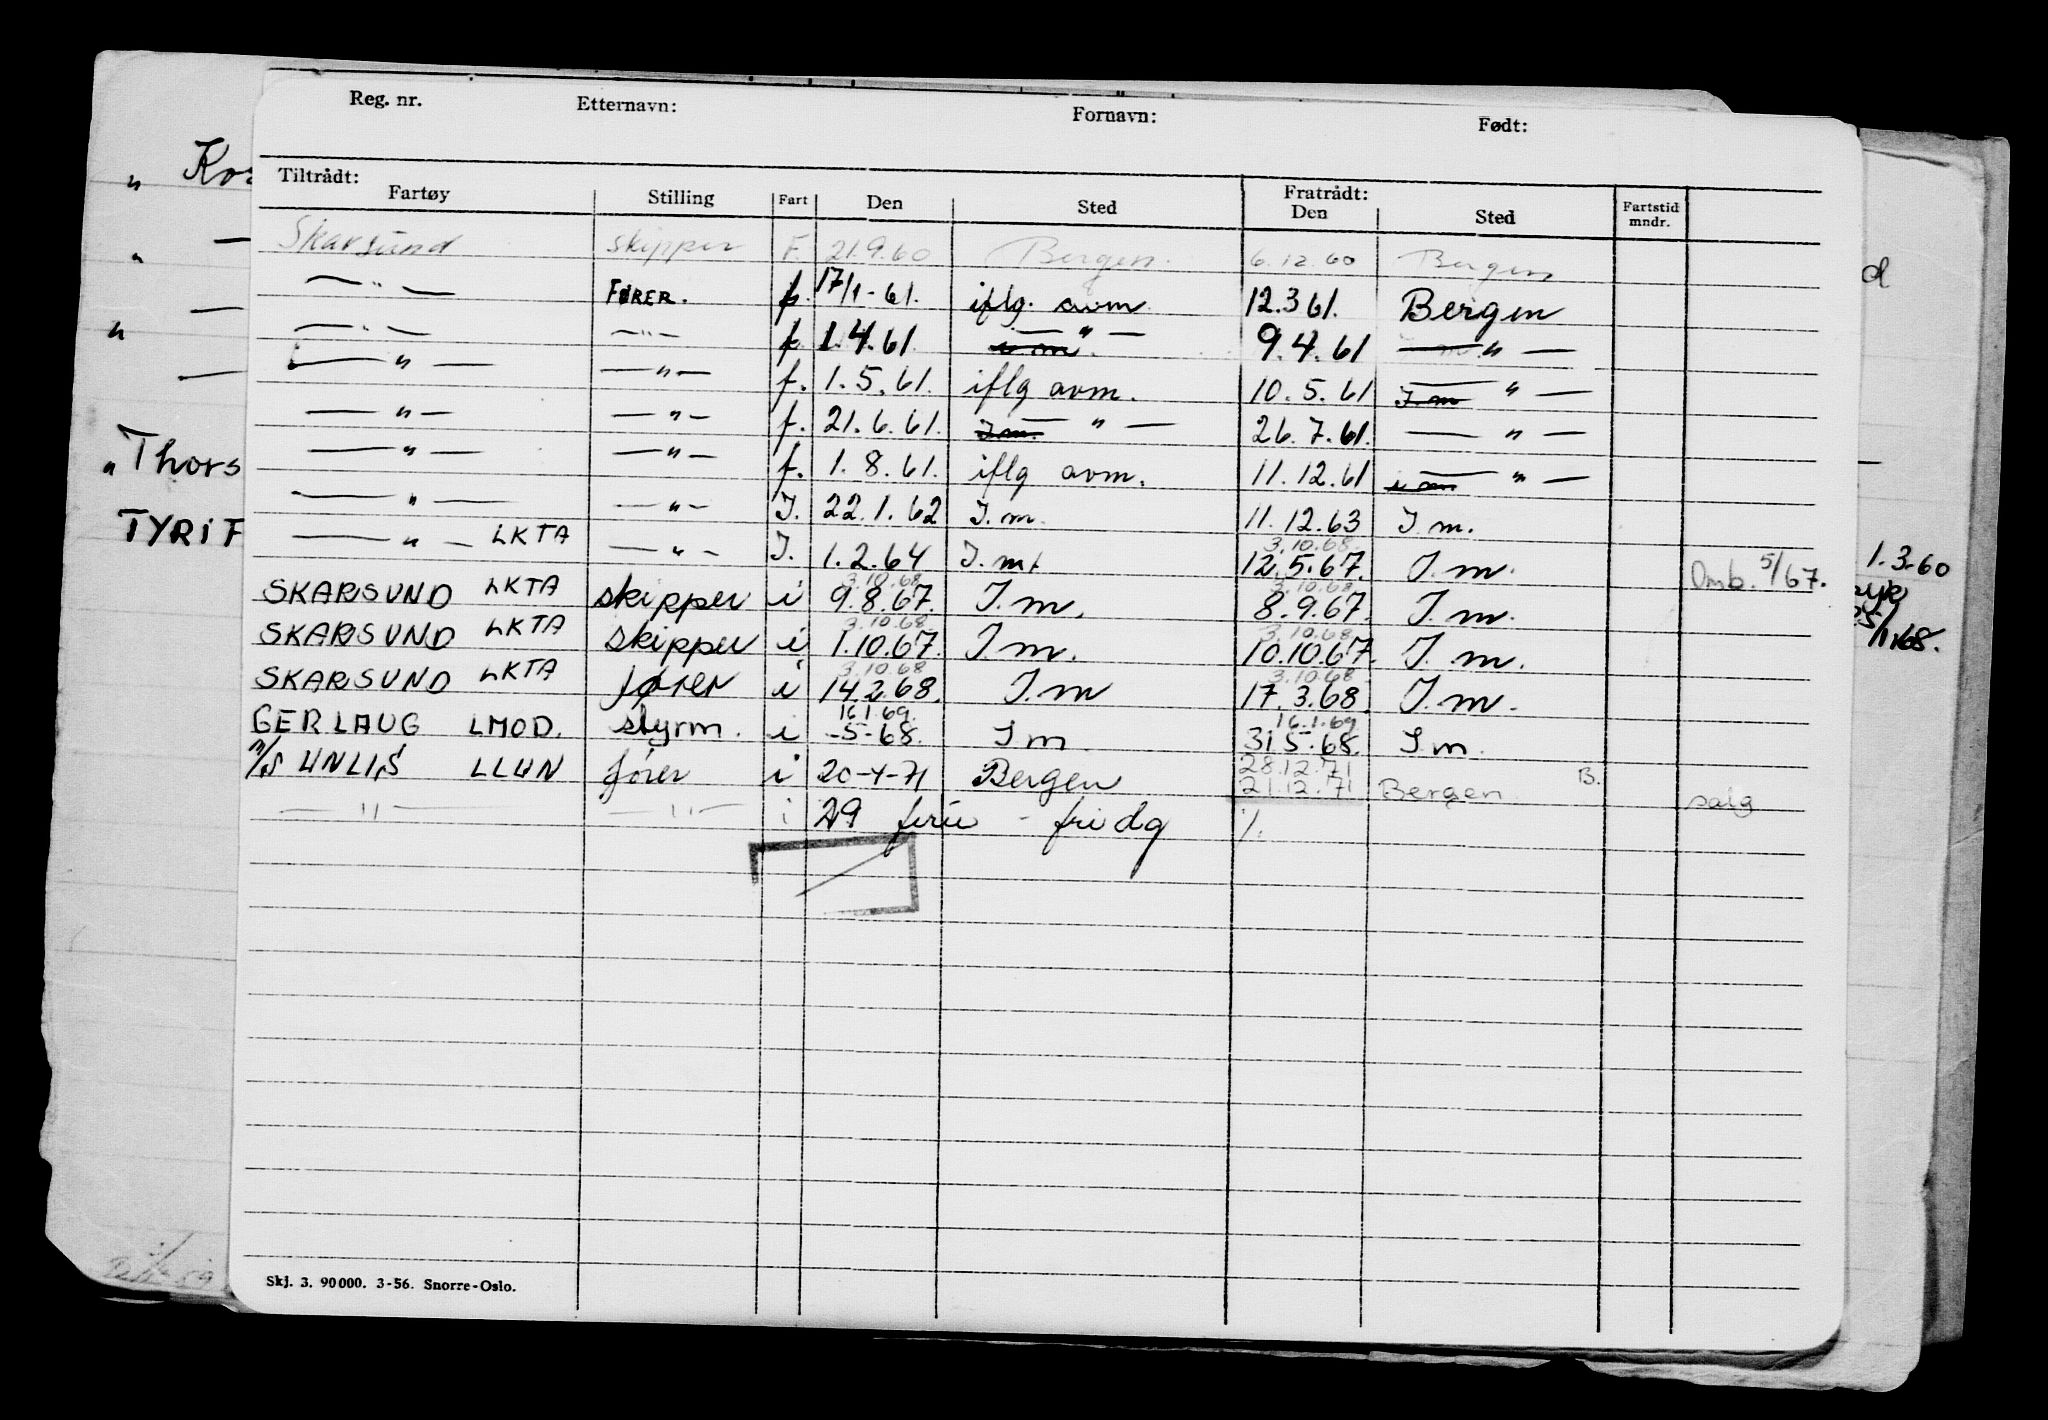 Reg. nr. Etternavn: Fornavn: Født:
Tiltrådt: Fratrådt:
Fartøy Stilling Fart Den Sted Den Sted Fartstid mndr.
Skarsund skipper F. 21.9.60 Bergen. 6.12.60 Bergen
— " — FØRER. f. 17/1-61. iflg. avm 12.3 61. Bergen
— " — — " — f. 1.4.61 i m — " — 9.4.61 — " —
— " — — " — f. 1.5.61. iflg avm. 10.5.61 I.m — " —
— " — — " — f. 21.6.61. I.m. — " — 26.7.61. — " —
— " — — " — f. 1.8.61. iflg avm. 11.12.61 i m — " —
— " — — " — I. 22.1.62 I.m. 11.12.63 I.m.
— " — LKTA — " — I. 1.2.64 I.m. 3.10.68 12.5.67. I.m. Omb. 5/67.
SKARSUND LKTA skipper i 3.10.68 9.8.67. I.m. 3.10.68 8.9.67. I.m.
SKARSUND LKTA skipper i 3.10.68 1.10.67. I.m. 3.10.68 10.10.67. I.m.
SKARSUND LKTA fører i 3.10.68 14.2.68. I.m 3.10.68 17.3.68. I.m.
GERLAUG LMOD. styrm. i 16.1.69. -5-68. I m 16.1.69 31.5.68. I m.
M/S UNLIS LLUN fører i 20-4-71 Bergen 28.12.71 21.12.71 Bergen B. salg
— " — — " — i 29 ferie - fridg %.
Skj. 3. 90000. 3-56. Snorre-Oslo.
" Kor
"
"
" Thors
TYRIF
d
1.3.60
1/1168.